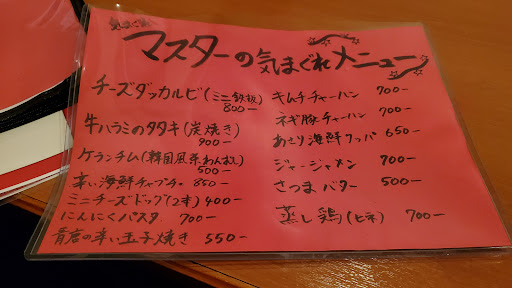 マスターの気まぐれメニュー
チーズダッカルビ(ミニ鉄板)
800-
牛ハラミのタタキ(炭焼き)
900-
ケランチム(韓国風茶わんむし)
500-
辛い海鮮チャプチェ 850-
ミニチーズドッグ(2本) 400-
にんにくパスタ 700-
青唐の辛い玉子焼き 550-
キムチチャーハン 700-
ネギ豚チャーハン 700-
あさり海鮮クッパ 650-
ジャージャメン 700-
さつまバター 500-
蒸し鶏(ヒネ) 700-